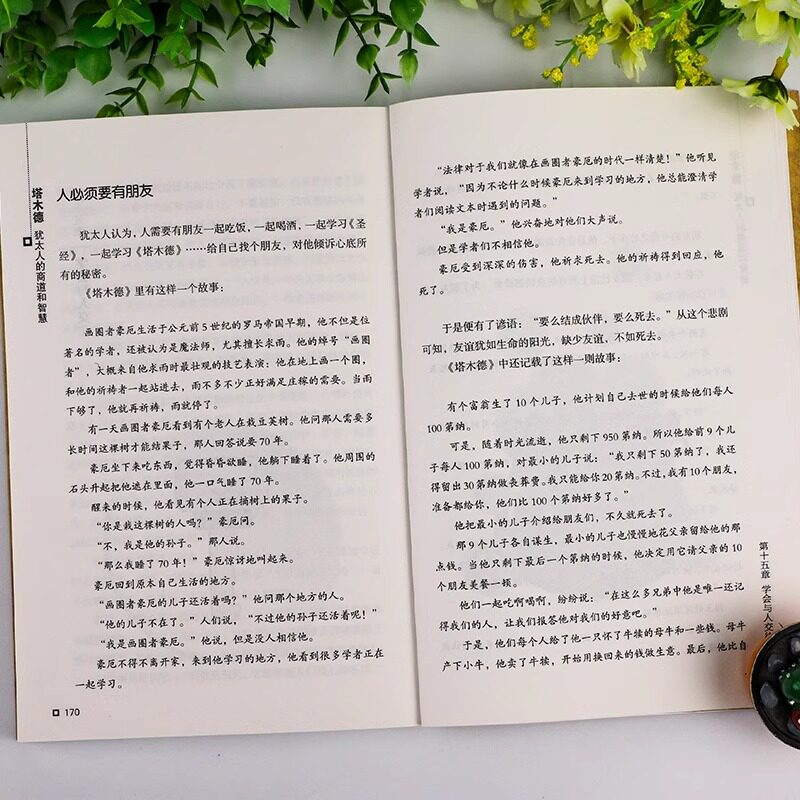 塔木德 犹太人的商道和智慧
人必须要有朋友
犹太人认为，人需要有朋友一起吃饭，一起喝酒，一起学习《圣
经》，一起学习《塔木德》……给自己找个朋友，对他倾诉心底所
有的秘密。
《塔木德》里有这样一个故事：
画圈者豪厄生活于公元前5世纪的罗马帝国早期，他不但是位
著名的学者，还被认为是魔法师，尤其擅长求雨。他的绰号“画圈
者”，大概来自他求雨时最壮观的技艺表演：他在地上画一个圈，
和他的祈祷者一起站进去，雨不多不少正好满足庄稼的需要。当雨
下够了，他就再祈祷，雨就停了。
有一天画圈者豪厄看到有个老人在栽豆荚树。他问那人需要多
长时间这棵树才能结果子，那人回答说要70年。
豪厄坐下来吃东西，觉得昏昏欲睡，他躺下睡着了。他周围的
石头升起把他遮在里面，他一口气睡了70年。
醒来的时候，他看见有个人正在摘树上的果子。
“你是我这棵树的人吗？”豪厄问。
“不，我是他的孙子。”那人说。
“那么我睡了70年！”豪厄惊讶地叫起来。
豪厄回到原本自己生活的地方。
“画圈者豪厄的儿子还活着吗？”他问那个地方的人。
“他的儿子不在了。”人们说，“不过他的孙子还活着呢！”
“我是画圈者豪厄。”他说，但是没人相信他。
豪厄不得不离开家，来到他学习的地方，他看到很多学者正在
一起学习。
170
“法律对于我们就像在画圈者豪厄的时代一样清楚！”他听见
学者说，“因为不论什么时候豪厄来到学习的地方，他总能澄清学
者们阅读文本时遇到的问题。”
“我是豪厄。”他兴奋地对他们大声说。
但是学者们不相信他。
豪厄受到深深的伤害，他祈求死去。他的祈祷得到回应，他
死了。
于是便有了谚语：“要么结成伙伴，要么死去。”从这个悲剧
可知，友谊犹如生命的阳光，缺少友谊，不如死去。
《塔木德》中还记载了这样一则故事：
有个富翁生了10个儿子，他计划自己去世的时候给他们每人
100第纳。
可是，随着时光流逝，他只剩下950第纳。所以他给前9个儿
子每人100第纳，对最小的儿子说：“我只剩下50第纳了，我还
得留出30第纳做丧葬费。我只能给你20第纳。不过，我有10个朋友，
准备都给你，他们比100个第纳好多了。”
他把最小的儿子介绍给朋友们，不久就死去了。
那9个儿子各自谋生，最小的儿子也慢慢地花父亲留给他的那
点钱。当他只剩下最后一个第纳的时候，他决定用它请父亲的10
个朋友美餐一顿。
他们一起吃啊喝啊，纷纷说：“在这么多兄弟中他是唯一还记
得我们的人，让我们报答他对我们的好意吧。”
于是，他们每个人给了他一只怀了牛犊的母牛和一些钱。母牛
产下小牛，他卖了牛犊，开始用换回来的钱做生意。最后，他比自
第十五章 学会与人交往